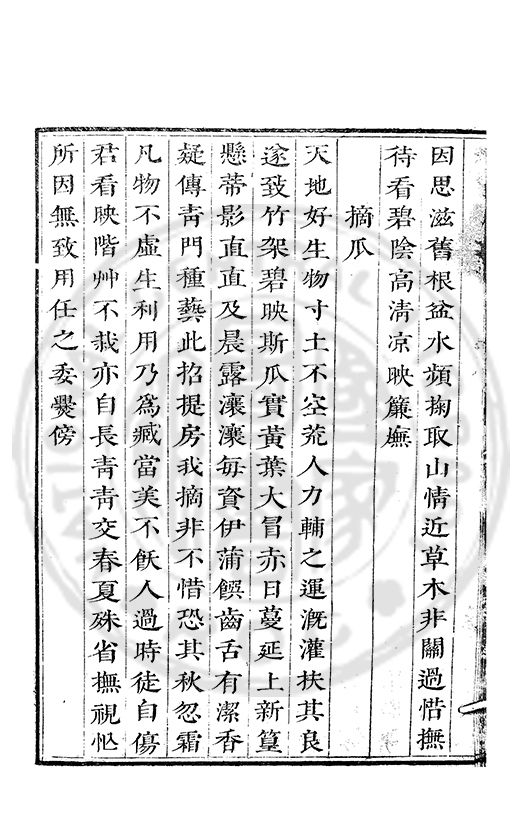 因思滋舊根盆水頻掬取山情近草木非關過惜撫
待看碧陰高清凉映簾廡
摘瓜
天地好生物寸土不空荒人力輔之運漑灌扶其良
遂致竹架碧映斯瓜實黃葉大冒赤日蔓延上新篁
懸蒂影直直及晨露瀼瀼每資伊蒲饌齒舌有潔香
疑傳靑門種藝此招提房我摘非不惜恐其秋忽霜
凡物不虛生利用乃爲臧當美不飫人過時徒自傷
君看映階艸不栽亦自長靑靑交春夏殊省撫視忙
所因無致用任之委爨傍